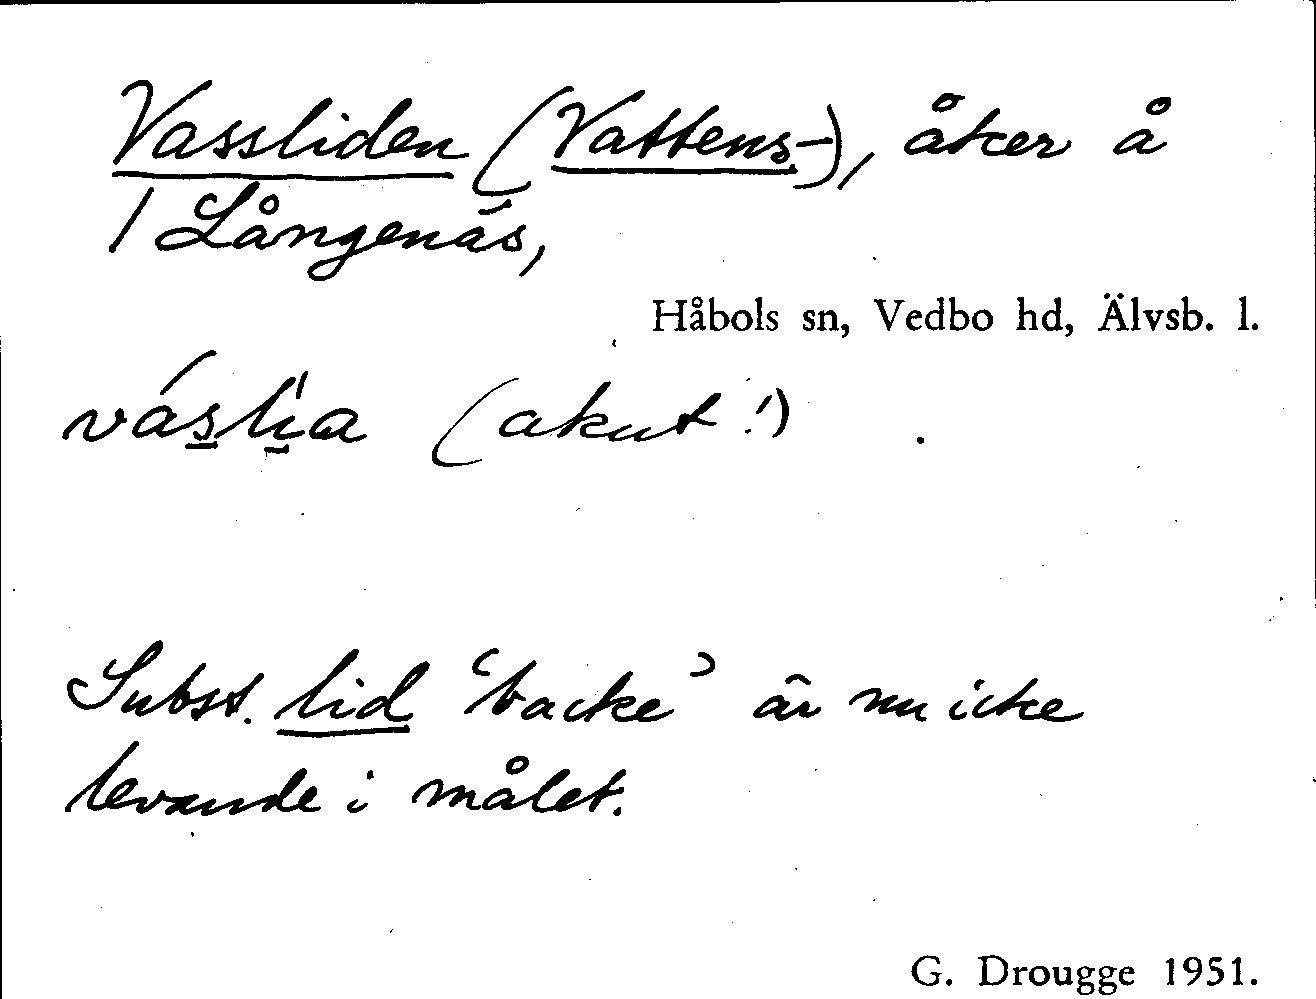 Vassliden (Vattens-), åker å
1 Långenäs,
Håbols sn, Vedbo hd, Älvsb. l.
váslia (akut!)
Subst. lid 'backe' är nu icke
levande i målet.
G. Drougge 1951.